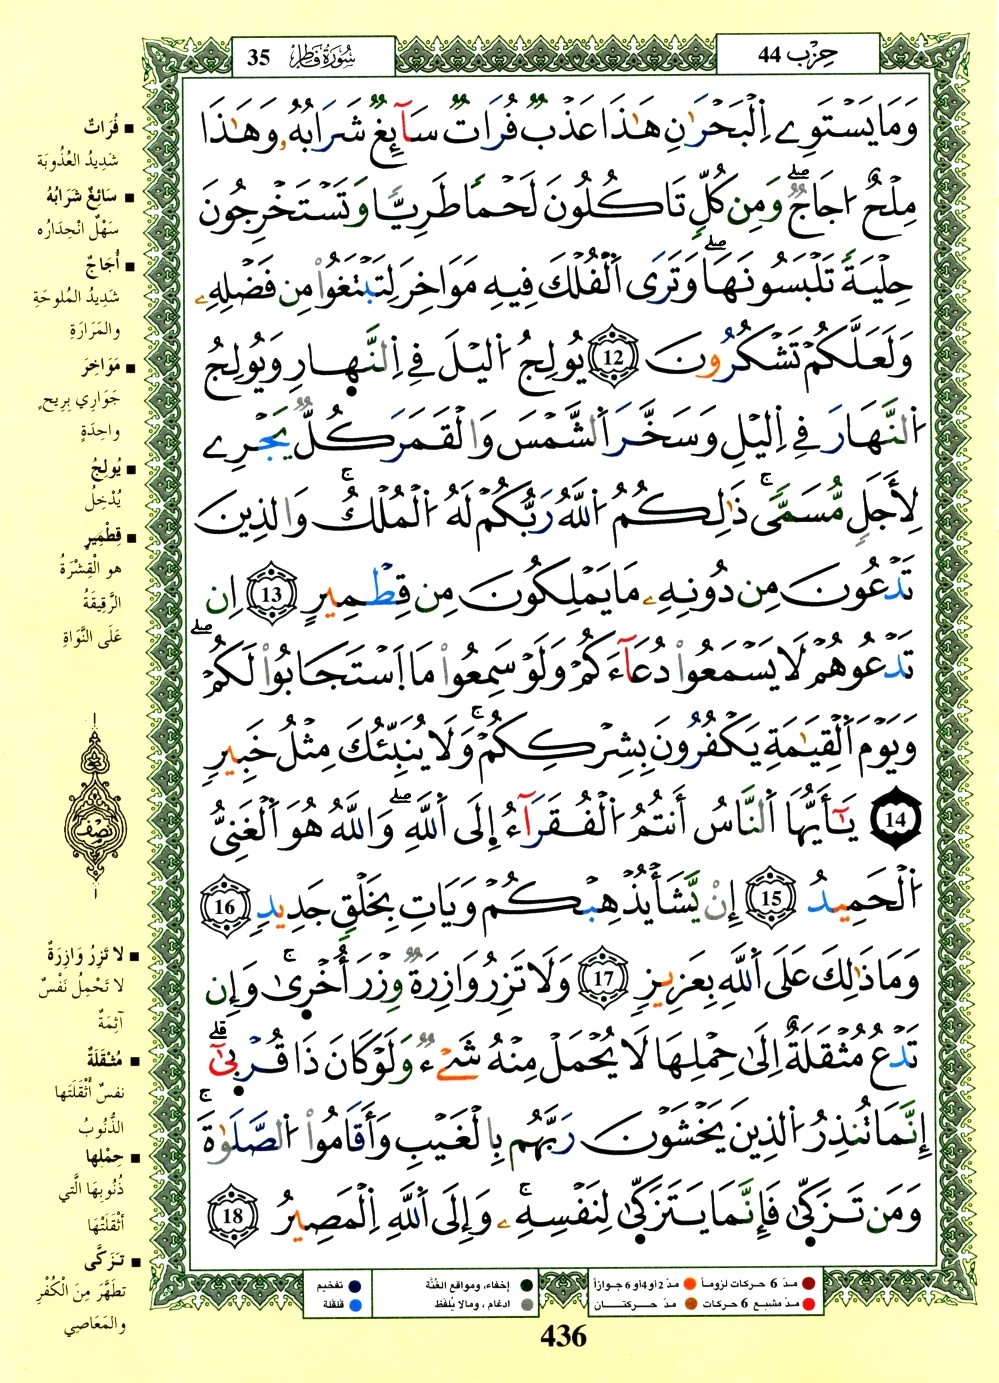 حِزْب 44
سُورَةُ فَاطِر 35
وَمَا يَسْتَوِے اِ۬لْبَحْرَٰنِ هَٰذَا عَذْبٞ فُرَاتٞ سَآئِغٞ شَرَابُهُۥ وَهَٰذَا
مِلْحٌ ا۟جَاجٞۖ وَمِن كُلّٖ تَاكُلُونَ لَحْماٗ طَرِيّاٗ وَتَسْتَخْرِجُونَ
حِلْيَةٗ تَلْبَسُونَهَاۖ وَتَرَى اَ۬لْفُلْكَ فِيهِ مَوَاخِرَ لِتَبْتَغُواْ مِن فَضْلِهِۦ
وَلَعَلَّكُمْ تَشْكُرُونَ 12 يُولِجُ اُ۬ليْلَ فِے اِ۬لنَّهارِ وَيُولِجُ
اُ۬لنَّهَارَ فِے اِ۬ليْلِ وَسَخَّرَ اَ۬لشَّمْسَ وَالْقَمَرَ كُلّٞ يَجْرِے
لِأَجَلٖ مُّسَمّيٗۚ ذَٰلِكُمُ اُ۬للَّهُ رَبُّكُمْ لَهُ اُ۬لْمُلْكُۚ وَالذِينَ
تَدْعُونَ مِن دُونِهِۦ مَا يَمْلِكُونَ مِن قِطْمِيرٍ 13 اِن
تَدْعُوهُمْ لَا يَسْمَعُواْ دُعَآءَكُمْ وَلَوْ سَمِعُواْ مَا اَ۪سْتَجَابُواْ لَكُمْۖ
وَيَوْمَ اَ۬لْقِيَٰمَةِ يَكْفُرُونَ بِشِرْكِكُمْۚ وَلَا يُنَبِّئُكَ مِثْلُ خَبِيرٖ
14 يَٰٓأَيُّهَا اَ۬لنَّاسُ أَنتُمُ اُ۬لْفُقَرَآءُ إِلَى اَ۬للَّهِۖ وَاللَّهُ هُوَ اَ۬لْغَنِيُّ
اُ۬لْحَمِيدُ 15 إِنْ يَّشَأْ يُذْهِبْكُمْ وَيَاتِ بِخَلْقٖ جَدِيدٖ 16
وَمَا ذَٰلِكَ عَلَى اَ۬للَّهِ بِعَزِيزٖ 17 وَلَا تَزِرُ وَازِرَةٞ وِزْرَ أُخْر۪يٰۚ وَإِن
تَدْعُ مُثْقَلَةٌ اِلَيٰ حِمْلِهَا لَا يُحْمَلْ مِنْهُ شَےْءٞ وَلَوْ كَانَ ذَا قُرْب۪يٰٓۗ
إِنَّمَا تُنذِرُ اُ۬لذِينَ يَخْشَوْنَ رَبَّهُم بِالْغَيْبِ وَأَقَامُواْ اُ۬لصَّلَوٰةَۚ
وَمَن تَزَكّ۪يٰ فَإِنَّمَا يَتَزَكّ۪يٰ لِنَفْسِهِۦۚ وَإِلَى اَ۬للَّهِ اِ۬لْمَصِيرُ 18
فُرَاتٌ
شَدِيدُ العُذُوبَة
سَائِغٌ شَرَابُهُ
سَهْلٌ انْحِدَارُه
أُجَاجٌ
شَدِيدُ المُلُوحَةِ
والمَرَارَةِ
مَوَاخِرَ
جَوَارِي بِرِيحٍ
واحِدَةٍ
يُولِجُ
يُدْخِلُ
قِطْمِيرٍ
هو الْقِشْرَةُ
الرَّقِيقَةُ
عَلَى النَّوَاةِ
رُبُع
نِصْف
لا تَزِرُ وَازِرَةٌ
لا تَحْمِلُ نَفْسٌ
آثِمَةٌ
مُثْقَلَةٌ
نفسٌ أَثْقَلَتهَا
الذُّنُوبُ
حِمْلِها
ذُنُوبِهَا الَّتِي
أثْقَلَتْهَا
تَزَكَّى
تطَهَّرَ مِنَ الْكُفْرِ
والمَعَاصِي
مدّ 6 حركات لزوماً
مدّ 2 أو 4 أو 6 جوازاً
مدّ مشبع 6 حركات
مدّ حركتان
إخفاء، ومواقع الغُنَّة
ادغام ، ومالا يُلفظ
تفخيم
قلقلة
436